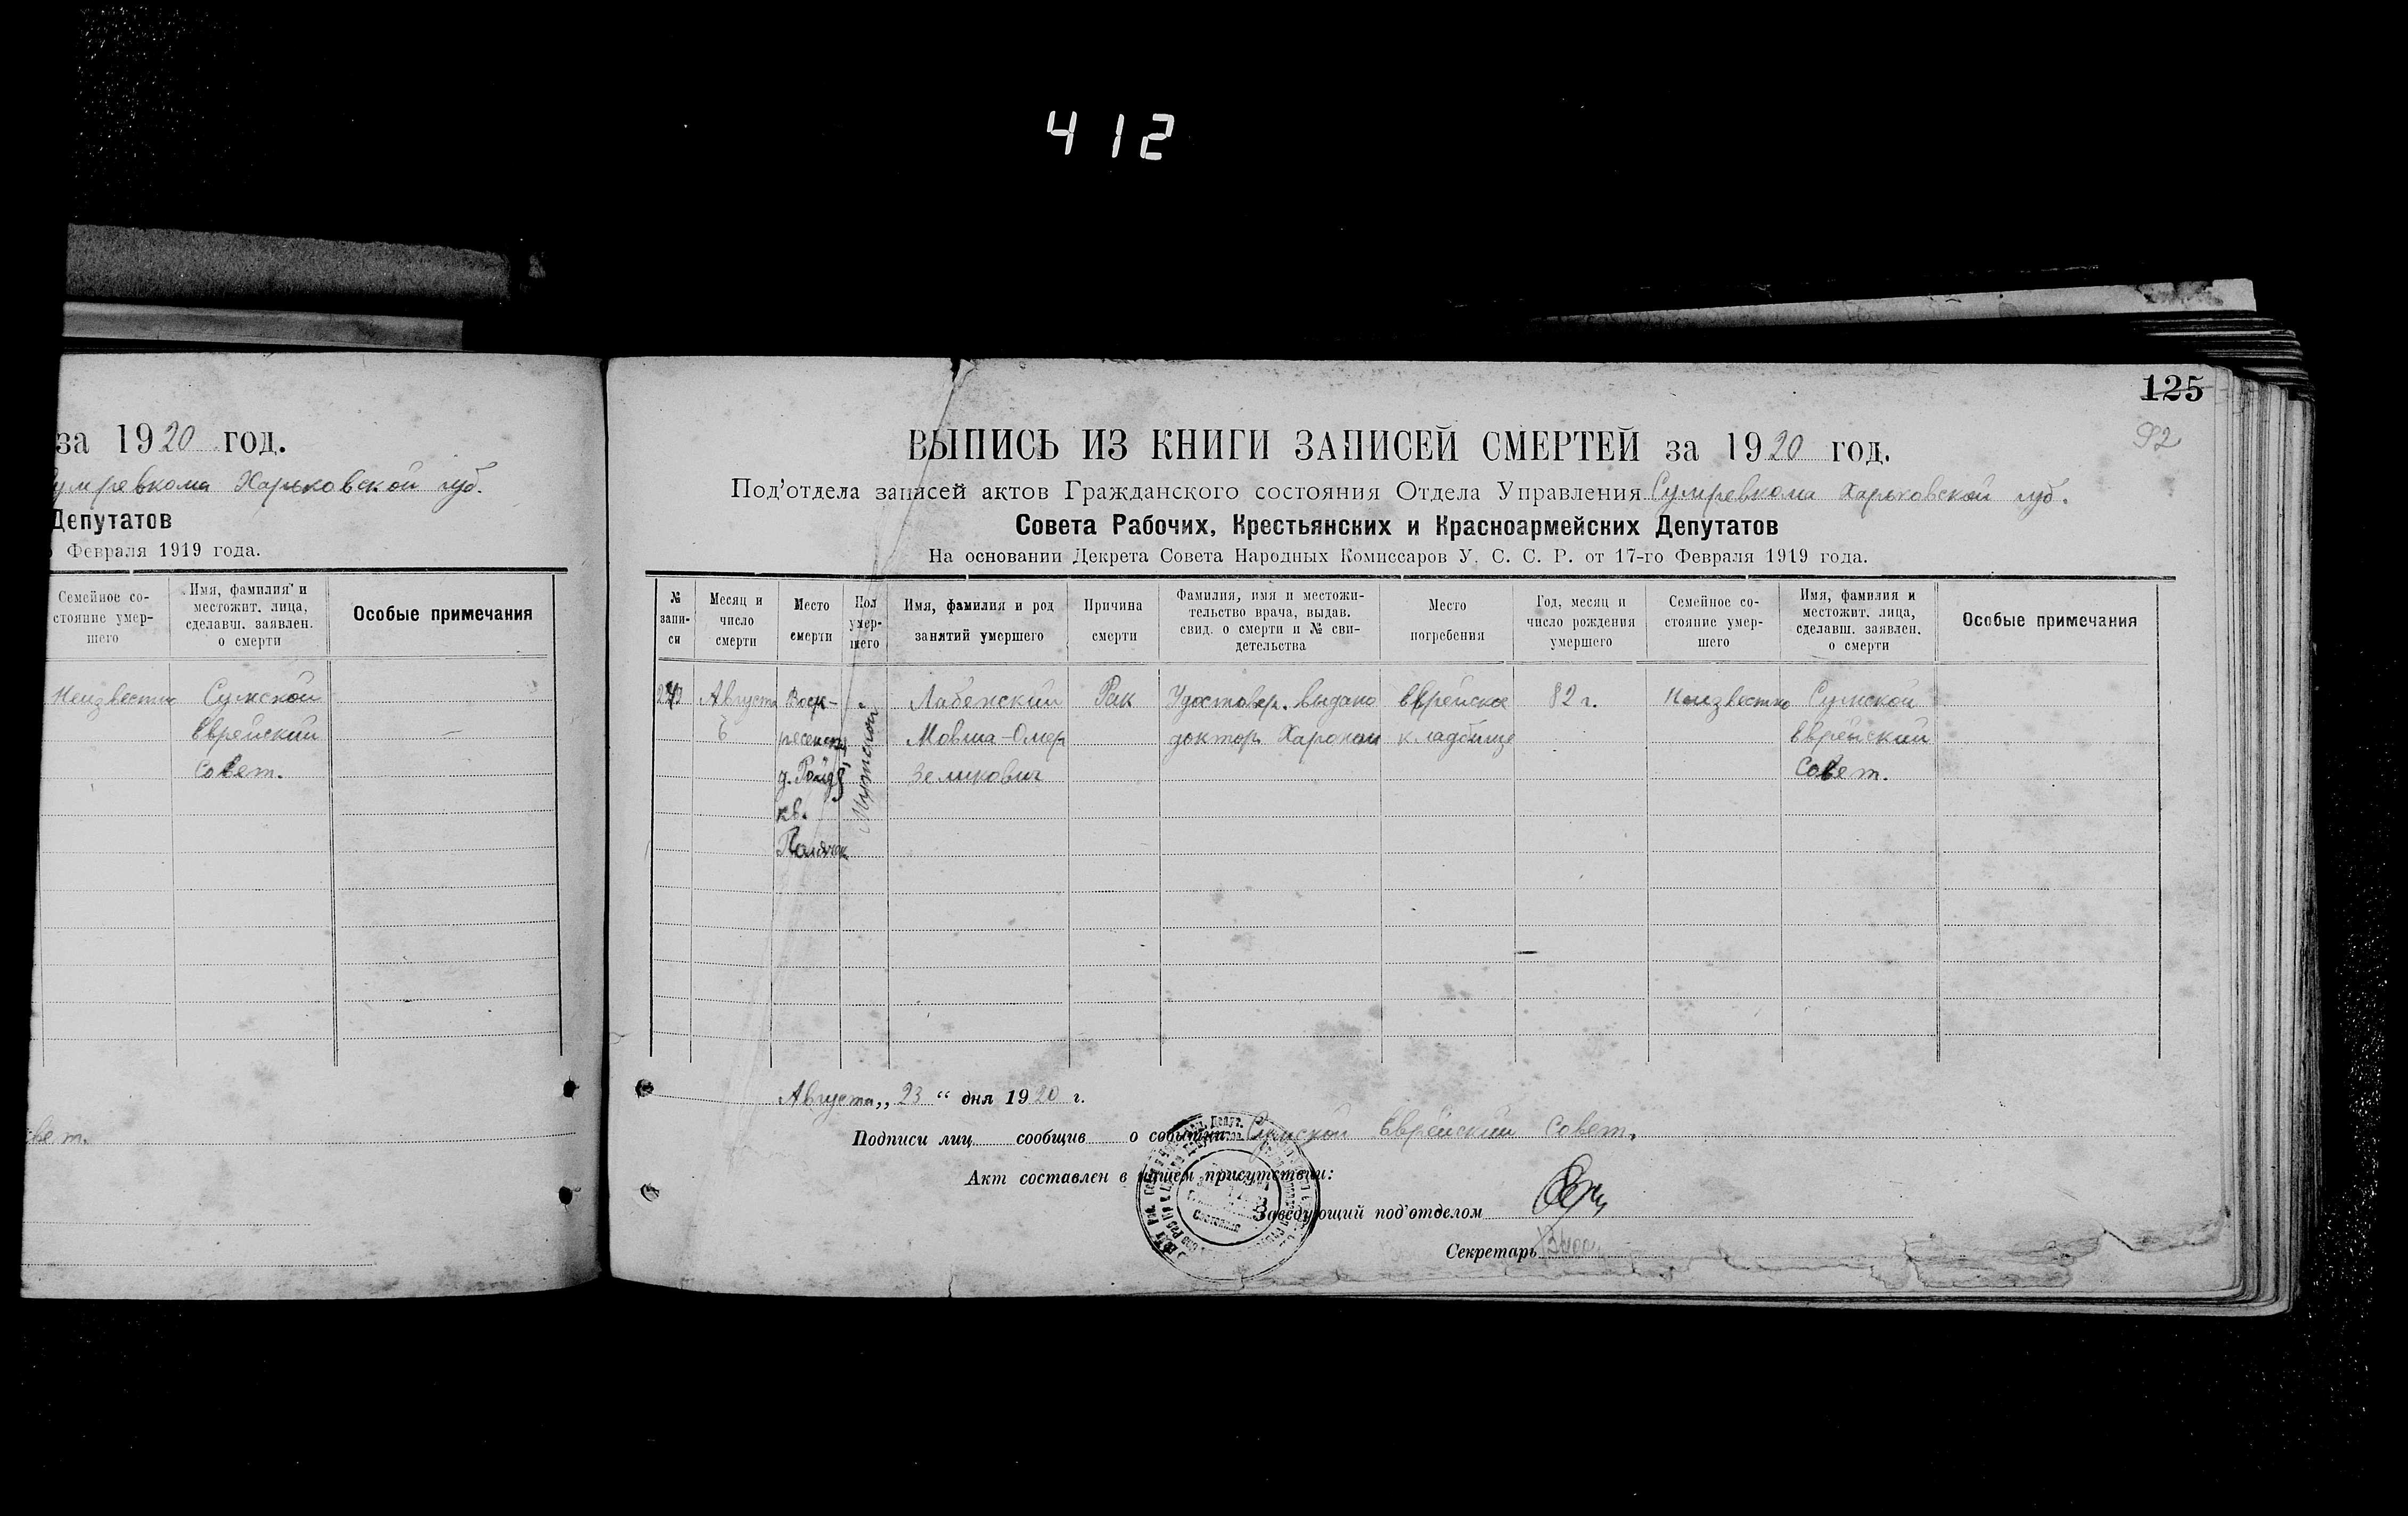 412
за 1920 год.
Сумревкома Харьковской губ.
Депутатов
Февраля 1919 года.
Семейное со-
стояние умер-
шего
Имя, фамилия и
местожит. лица,
сделавш. заявлен.
о смерти
Особые примечания
Неизвестно
Сумской
Еврейский
Совет.
—
125
92
ВЫПИСЬ ИЗ КНИГИ ЗАПИСЕЙ СМЕРТЕЙ за 1920 год.
Под'отдела записей актов Гражданского состояния Отдела Управления Сумревкома Харьковской губ.
Совета Рабочих, Крестьянских и Красноармейских Депутатов
На основании Декрета Совета Народных Комиссаров У. С. С. Р. от 17-го Февраля 1919 года.
№
запи-
си
Месяц и
число
смерти
Место
смерти
Пол
умер-
шего
Имя, фамилия и род
занятий умершего
Причина
смерти
Фамилия, имя и местожи-
тельство врача, выдав.
свид. о смерти и № сви-
детельства
Место
погребения
Год, месяц и
число рождения
умершего
Семейное со-
стояние умер-
шего
Имя, фамилия и
местожит. лица,
сделавш. заявлен.
о смерти
Особые примечания
Августа
6
Воск-
кв.
Мужской
Лабенский
Мовша-Омер
Зеликович
Рак
Удостовер. выдано
доктор.
Еврейское
кладбище
82 г.
Неизвестно
Сумской
Еврейский
Совет.
Августа „ 23 “ дня 1920 г.
Подписи лиц сообщив о событии Сумской Еврейский Совет.
Акт составлен в нашем присутствии:
Заведующий под'отделом
Секретарь